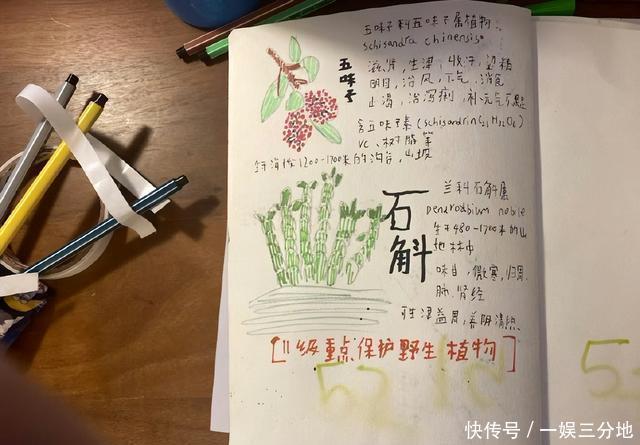 五味子科五味子属植物
schisandra chinensis
五味子
滋肾,生津,收汗,涩精
明目,治风,下气,消食
止渴,治泻痢,补元气不足
含五味子素(schisandrin C₂₁H₃₂O₆)
VC、树脂等
生于海拔1200-1700米的沟谷,山坡
石斛
兰科石斛属
Dendrobium nobile
生于480-1700米的山
地林中
味甘,微寒,归胃
肺.肾经
可生津益胃,养阴清热
[II级重点保护野生植物]
快传号/一娱三分地